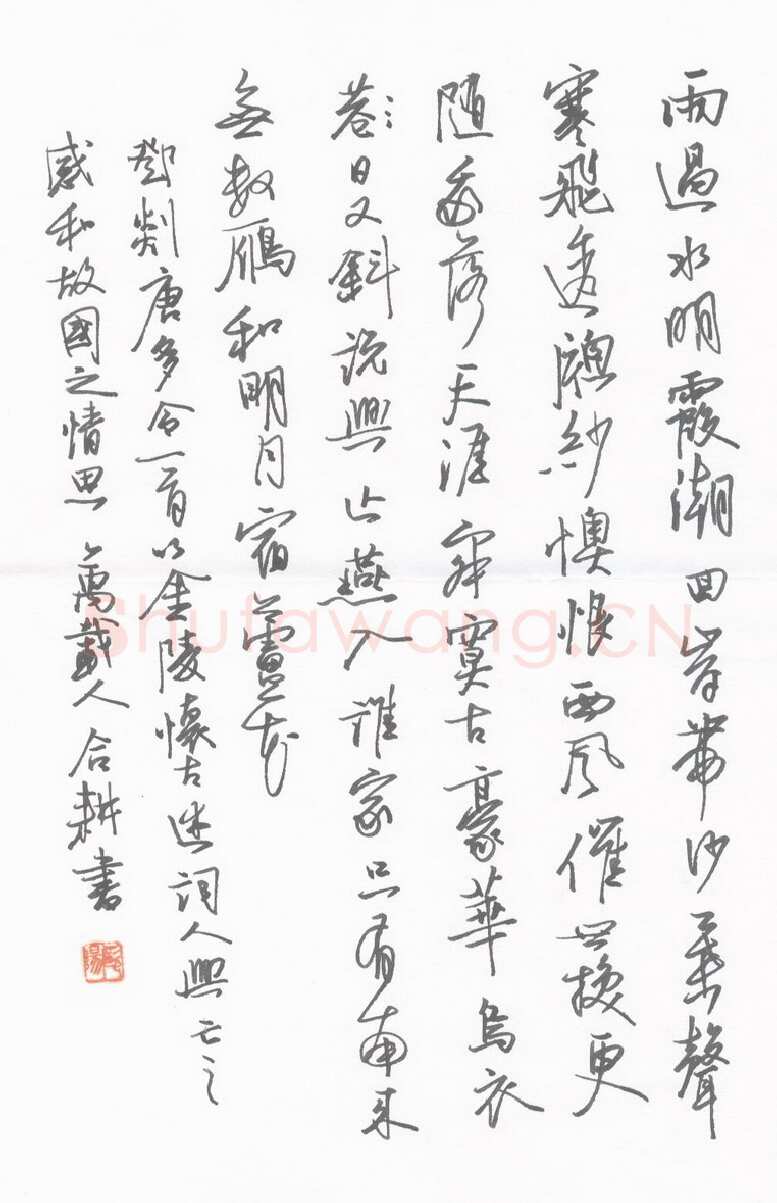 雨過水明霞潮回岸帶沙葉聲
寒飛透牕紗懊恨西風催世換更
隨我落天涯寂寞古豪華烏衣
巷日又斜說興亡燕入誰家只有南來
無數鴈和明月宿蘆花
鄧剡唐多令一首以金陵懷古述詞人興亡之
感和故國之情思 萬載人合耕書
Shufawang.CN